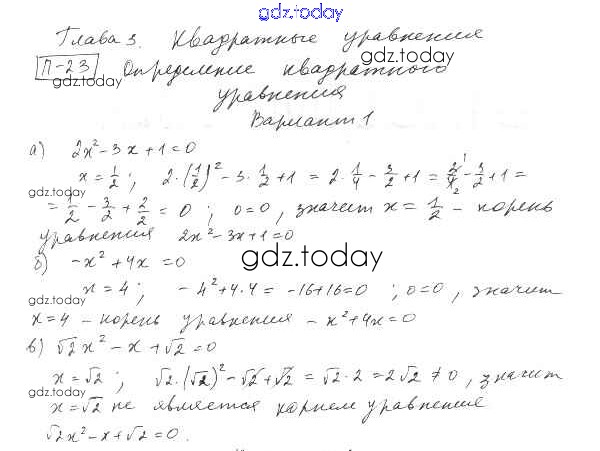 gdz.today
Глава 3. Квадратные уравнения
gdz.today
П-23 Определение квадратного
gdz.today
уравнения
Вариант 1
а) 2x² - 3x + 1 = 0
x = 1/2; 2·(1/2)² - 3·1/2 + 1 = 2·1/4 - 3/2 + 1 = 2/4 - 3/2 + 1 =
gdz.today
= 1/2 - 3/2 + 2/2 = 0; 0=0, значит x = 1/2 - корень
уравнения 2x² - 3x + 1 = 0
б) -x² + 4x = 0
gdz.today
x = 4; -4² + 4·4 = -16 + 16 = 0; 0=0, значит
gdz.today
x=4 - корень уравнения -x² + 4x = 0
в) √2x² - x + √2 = 0
x = √2; √2·(√2)² - √2 + √2 = √2·2 = 2√2 ≠ 0, значит
gdz.today
x = √2 не является корнем уравнения
√2x² - x + √2 = 0.